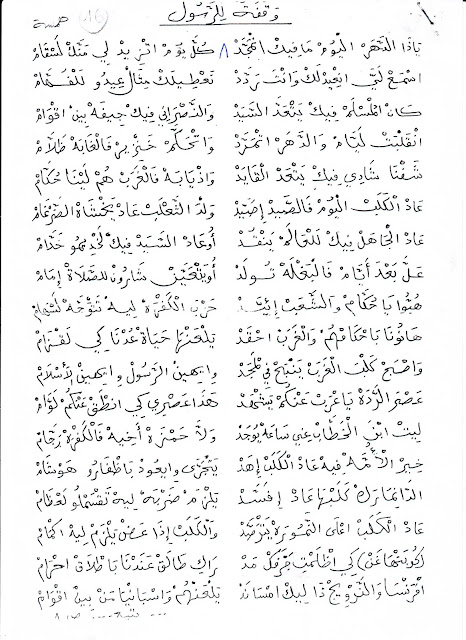 وقفة للرسول
ياذا الدهر اليوم مافيك انجد / كل يوم اتزيد لي منك لسقام
اسمع لي انعيدلك وانت ردد نعطيلك مثال عيدو للفهام
كان المسلم فيك يتعد السيد والنصراني فيك جيفه بين اقوام
انقلبت ليام والدهر اتمرد واتحكم خنزير فالغابه ظلام
شفنا شادي فيك يتعد القايد واذيابه فالغرب هم لينا حكام
عاد الكلب اليوم فالصيد إصيد ولد الثعلب عاد يخشاه الضرغام
عاد الجاهل فيك للعالم ينقد أوعاد السيد فيك لخديمو خدام
عل بعد أيام فالبغله تولد أويتعين شارون للصلاة إمام
هنوا يا حكام والشعب إيد حزب الكفره ليه نتوجه لسهام
هانونا يا حكامهم والغرب احقد يلعنها حياة عدنا كي لغنام
واصبح كلب الغرب ينبح في لمجد وايهين الرسول وايهين لاسلام
عصر الردة يا عرب عنكم يشهد هذا عصري كي انطق عنكم لوام
ليت ابن الخطاب عني ساعه يوجد ولا حمزة أخيه فالكفره زحام
خير الأمه فيه عاد الكلب إهد يتجزى وايعود باظفارو هوشام
الدانمارك كلبها عاد إفسد يلزم ضربة ليه تقسملو لعظام
عاد الكلب اعلى النمورة يترصد والكلب إذا عض يلزم ليه الجام
كي اظلامت جرفل مد راك طالق عندنا باطلاق احرام
افرنسا والنرويج ذا ليك امساند يلعنهم واسبانيا من بين اقوام